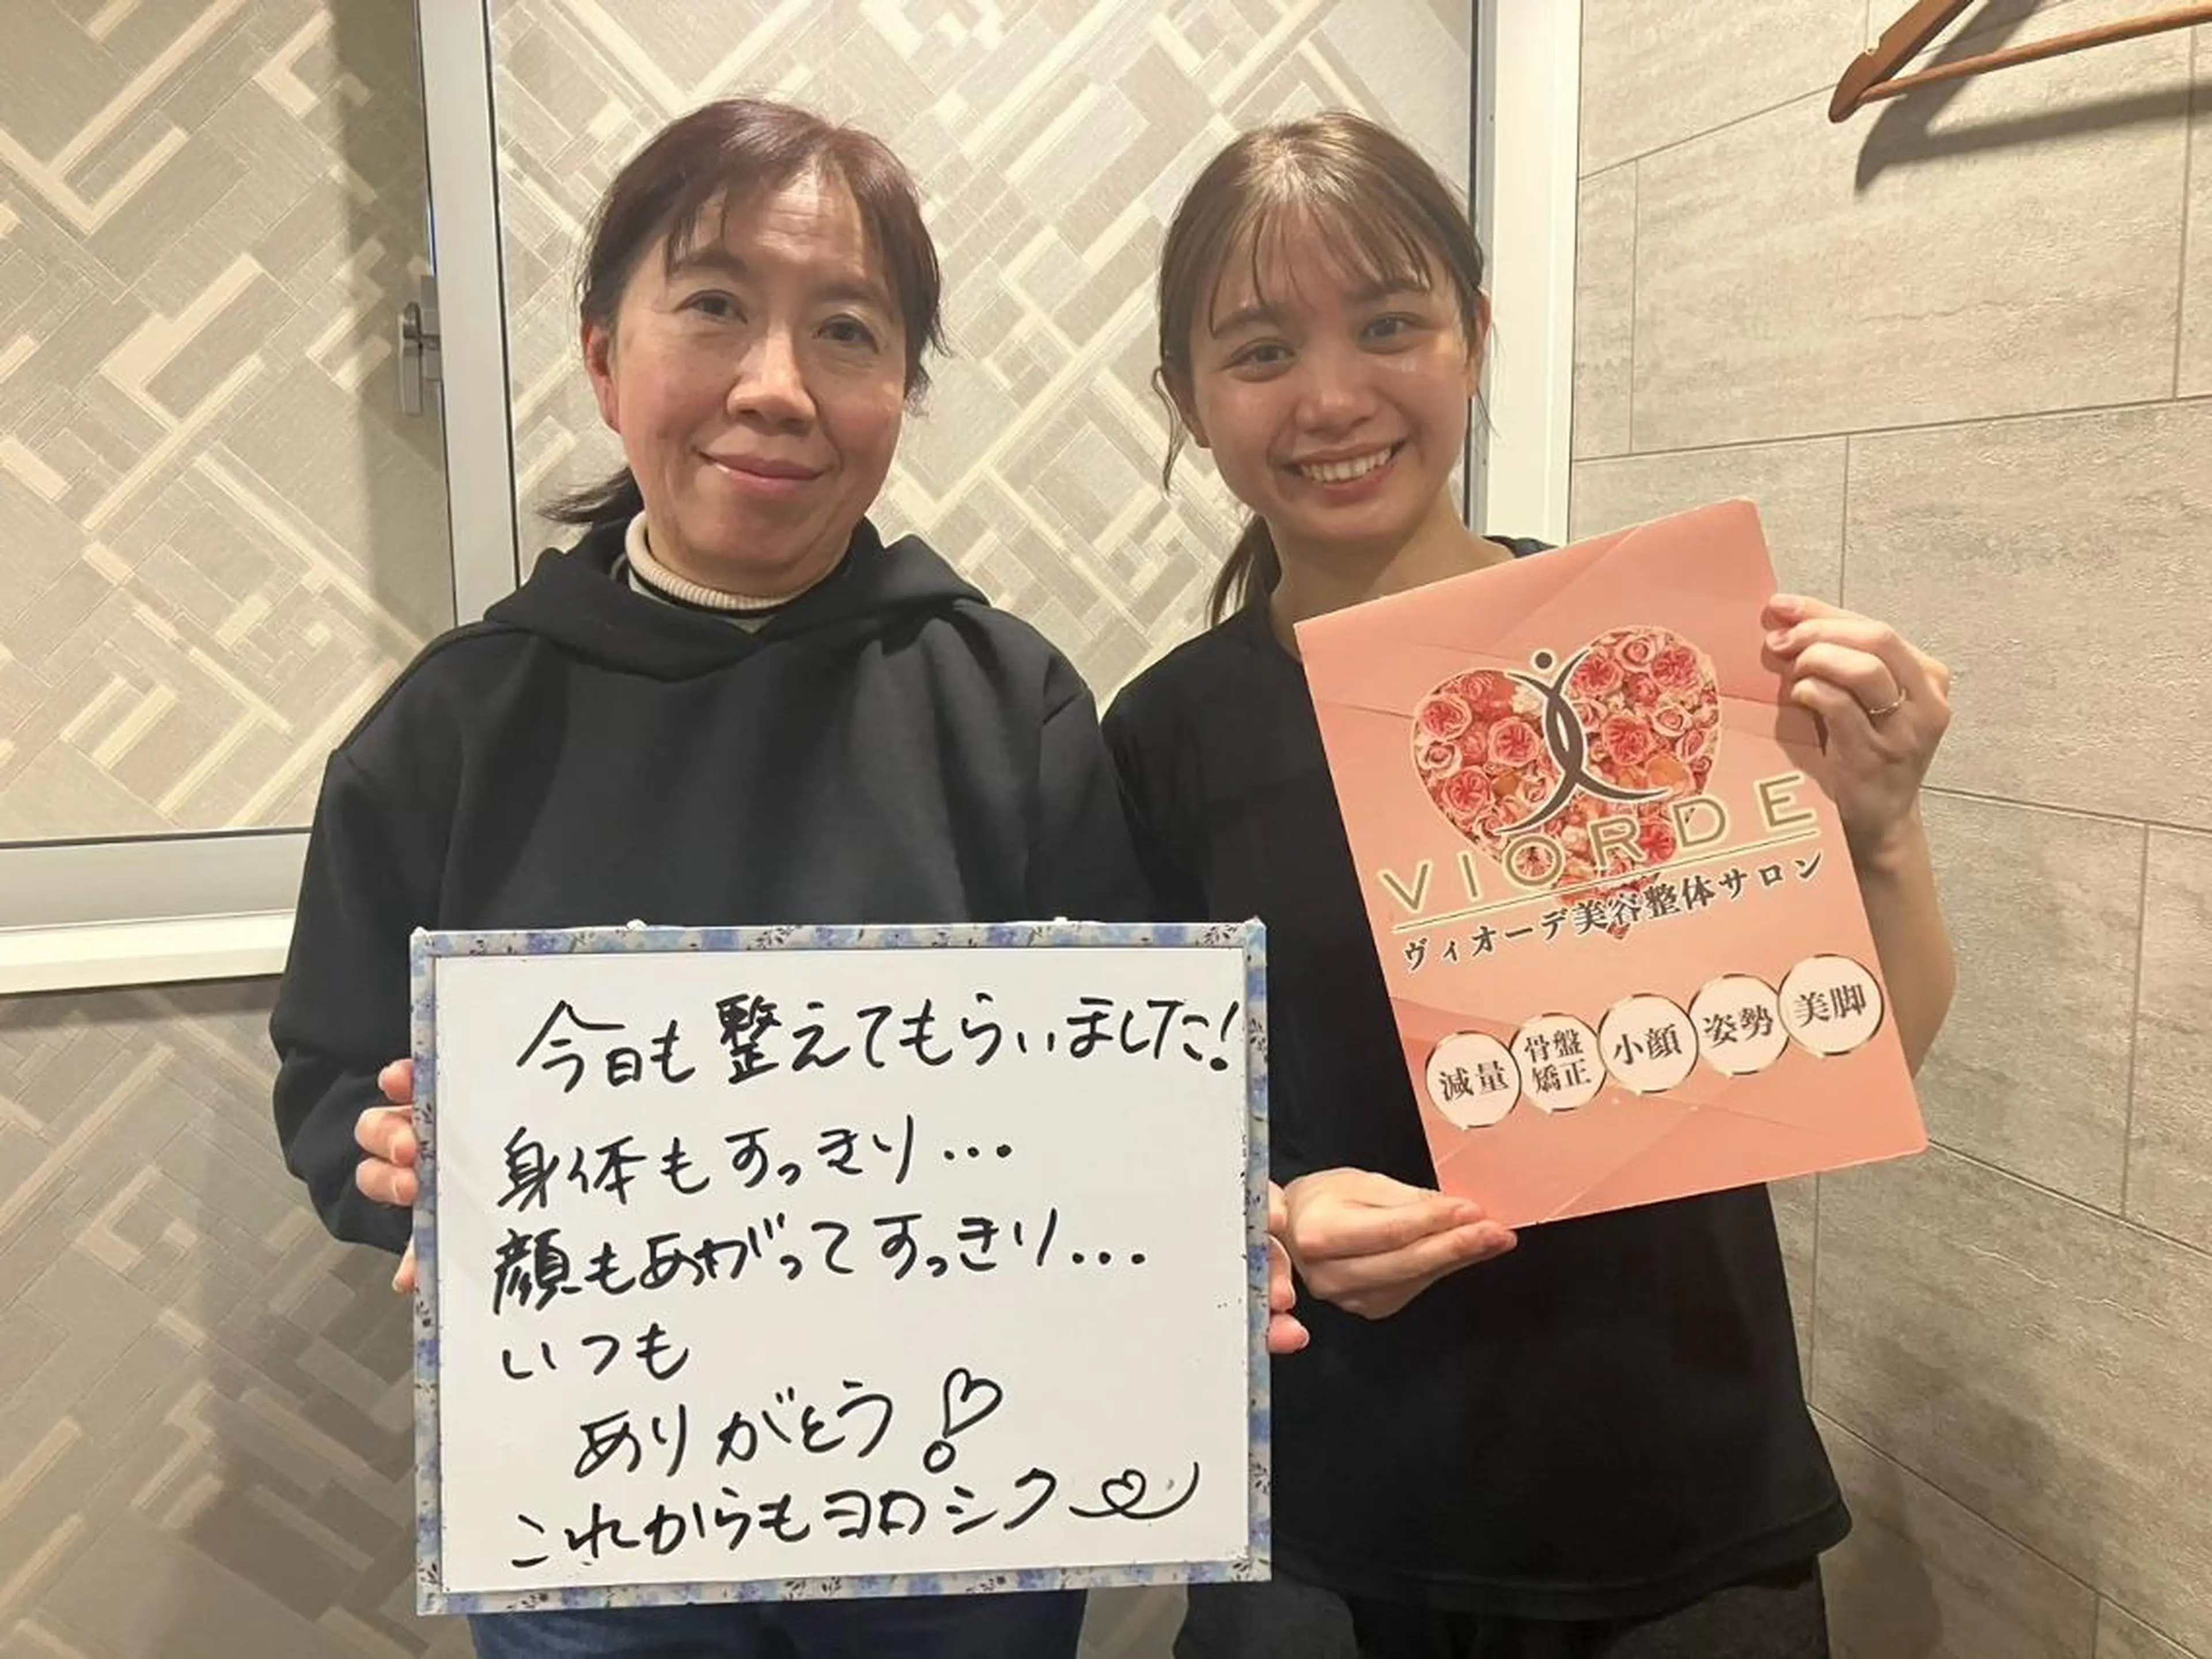 今日も整えてもらいました!
身体もすっきり...
顔もあがってすっきり...
いつも
ありがとう!
これからもヨロシク
VIORDE
ヴィオーデ美容整体サロン
減量
骨盤
矯正
小顔
姿勢
美脚